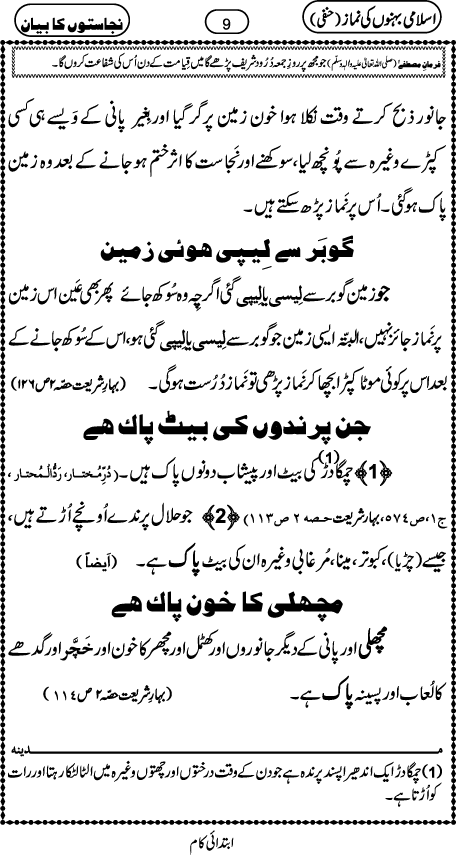 اسلامی بہنوں کی نماز (حنفی)
9
نجاستوں کا بیان
فرمانِ مصطفےٰ (صلی اللہ تعالیٰ علیہ والہ وسلم) جو مجھ پر روزِ جمعہ دُرُود شریف پڑھے گا میں قیامت کے دن اُس کی شفاعت کروں گا۔
جانور ذبح کرتے وقت نکلا ہوا خون زمین پر گر گیا اور بغیر پانی کے وَیسے ہی کسی
کپڑے وغیرہ سے پُونچھ لیا، سوکھنے اور نَجاست کا اثر ختم ہو جانے کے بعد وہ زمین
پاک ہو گئی۔ اُس پر نَماز پڑھ سکتے ہیں۔
گوبَر سے لِیپی ہوئی زمین
جو زمین گوبر سے لِیسی یا لِیپی گئی اگرچِہ وہ سُوکھ جائے پھر بھی عَین اس زمین
پر نَماز جائز نہیں، البتّہ ایسی زمین جو گوبر سے لِیسی یا لِیپی گئی ہو، اس کے سُوکھ جانے کے
بعد اس پر کوئی موٹا کپڑا بچھا کر نَماز پڑھی تو نَماز دُرُست ہوگی۔ (بہارِ شریعت حصّہ ۲ ص ۱۲۶)
جن پرندوں کی بیٹ پاک ہے
﴿1﴾ چمگادڑ(1) کی بیٹ اور پیشاب دونوں پاک ہیں۔ (دُرِّمُختار، رَدُّالْمُحتار ،
ج۱، ص ۵۷٤، بہارِ شریعت حصہ ۲ ص ۱۱۳) ﴿2﴾ جو حلال پرندے اُونچے اُڑتے ہیں،
جیسے (چِڑیا)، کبوتر، مینا، مُرغابی وغیرہ ان کی بیٹ پاک ہے۔ (اَیضاً)
مچھلی کا خون پاک ہے
مچھلی اور پانی کے دیگر جانوروں اور کھٹمل اور مچھر کا خون اور خَچَّر اور گدھے
کا لُعاب اور پسینہ پاک ہے۔ (بہارِ شریعت حصّہ ۲ ص ۱۱٤)
مــدینہ
(1) چمگادڑ ایک اندھیرا پسند پرندہ ہے جو دن کے وقت درختوں اور چھتوں وغیرہ میں الٹا لٹکا رہتا اور رات
کو اُڑتا ہے۔
ابتدائی کام